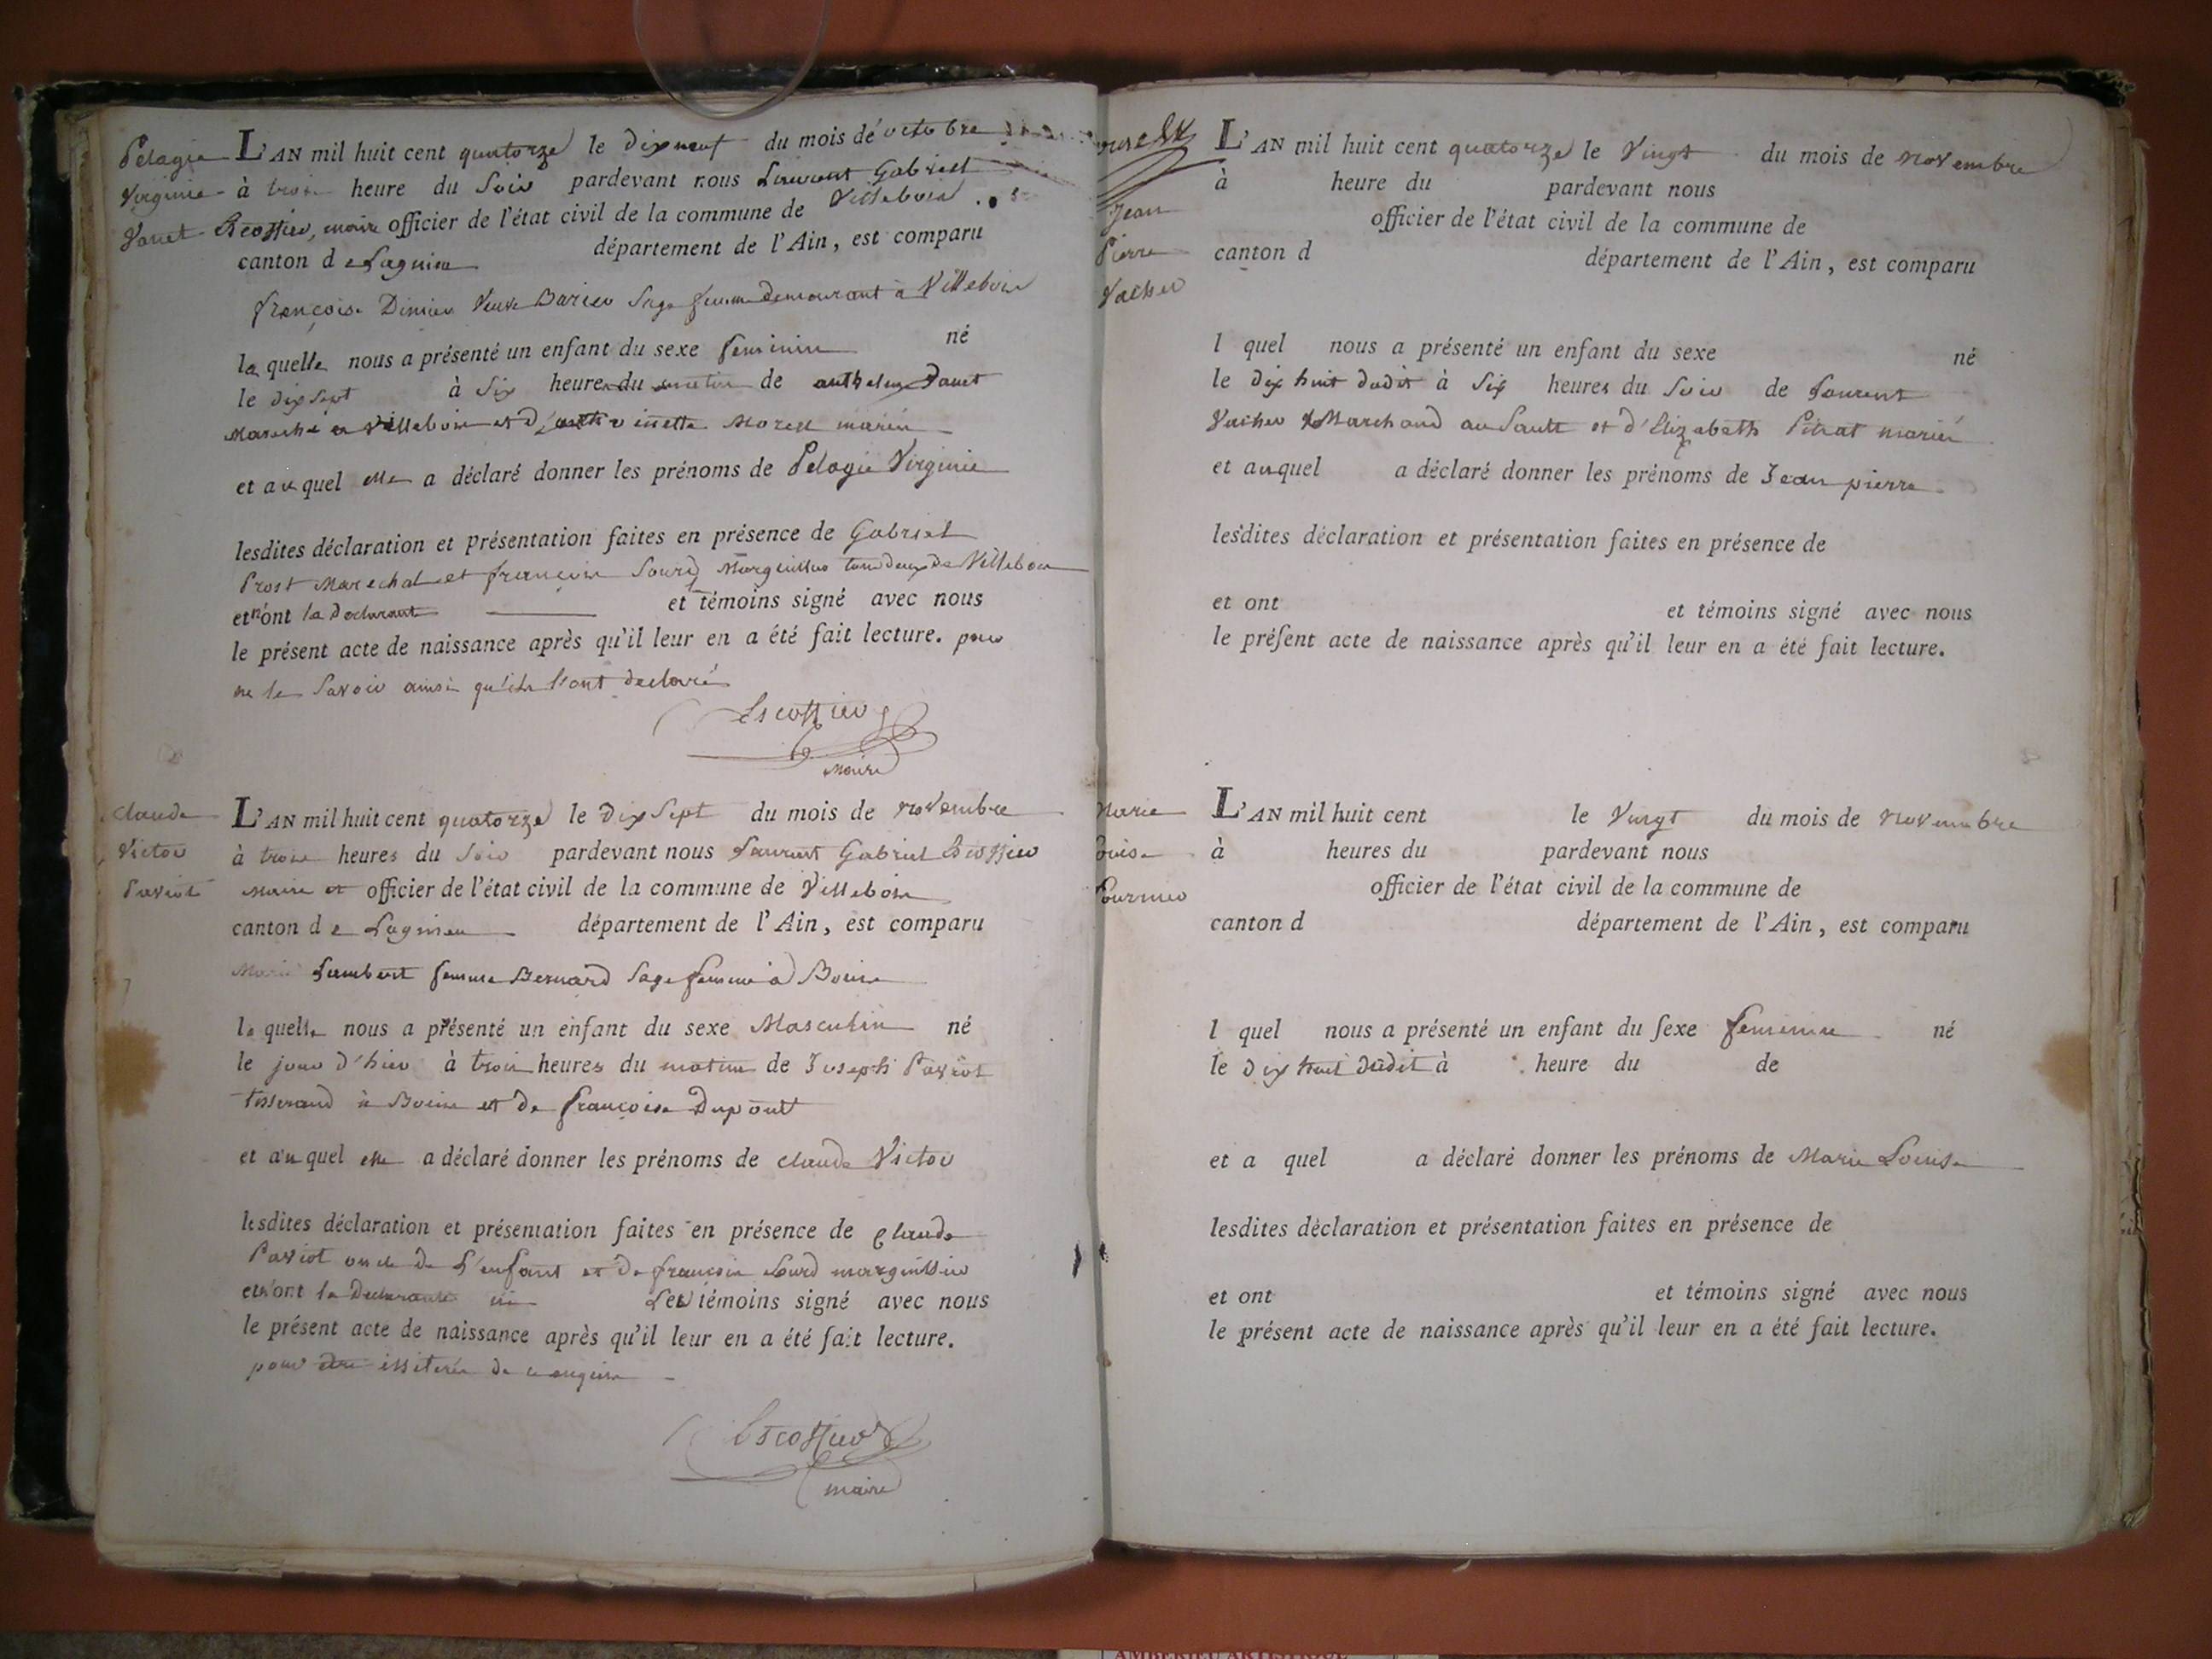 Pelagie
Virginie
Janet
L'AN mil huit cent quatorze le dix neuf du mois de octobre
à trois heure du soir pardevant nous Laurent Gabriel
Escoffier, maire officier de l'état civil de la commune de Villebois
canton de Lagnieu département de l'Ain, est comparu
françoise Dimier Veuve Barier sage femme demeurant à Villebois
la quelle nous a présenté un enfant du sexe feminin né
le dix sept à six heures du matin de anthelme Janet
à Villebois et d'anthoinette Morel mariés
et au quel elle a déclaré donner les prénoms de Pelagie Virginie
lesdites déclaration et présentation faites en présence de Gabriel
Prost Marechal et françois Sourd Marguillier tous deux de Villebois
et n'ont la declarant et témoins signé avec nous
le présent acte de naissance après qu'il leur en a été fait lecture. pour
ne le savoir ainsi qu'ils l'ont declaré
Escoffier
maire
Claude
Victor
Paviot
L'AN mil huit cent quatorze le dix sept du mois de novembre
à trois heures du soir pardevant nous Laurent Gabriel Escoffier
maire et officier de l'état civil de la commune de Villebois
canton de Lagnieu département de l'Ain, est comparu
Marie Lambert femme Bernard sage femme à Bouis
la quelle nous a présenté un enfant du sexe Masculin né
le jour d'hier à trois heures du matin de Joseph Paviot
tisserand à Bouis et de françoise Dupont
et au quel elle a déclaré donner les prénoms de claude Victor
lesdites déclaration et présentation faites en présence de claude
Paviot oncle de l'enfant et de françois Sourd marguillier
et n'ont la Declarante ni les témoins signé avec nous
le présent acte de naissance après qu'il leur en a été fait lecture.
pour être illiterés de ce enquis
Escoffier
maire
Jean
Pierre
Vacher
L'AN mil huit cent quatorze le Vingt du mois de novembre
à heure du pardevant nous
officier de l'état civil de la commune de
canton d département de l'Ain, est comparu
l quel nous a présenté un enfant du sexe né
le dix huit dudit à six heures du soir de Laurent
Vacher Marchand au Sault et d'Elizabeth Pitrat mariés
et auquel a déclaré donner les prénoms de Jean pierre
lesdites déclaration et présentation faites en présence de
et ont et témoins signé avec nous
le préſent acte de naissance après qu'il leur en a été fait lecture.
Marie
Louise
Fournier
L'AN mil huit cent le Vingt du mois de novembre
à heures du pardevant nous
officier de l'état civil de la commune de
canton d département de l'Ain, est comparu
l quel nous a présenté un enfant du ſexe feminin né
le dix huit dudit à heure du de
et a quel a déclaré donner les prénoms de Marie Louise
lesdites déclaration et présentation faites en présence de
et ont et témoins signé avec nous
le présent acte de naissance après qu'il leur en a été fait lecture.